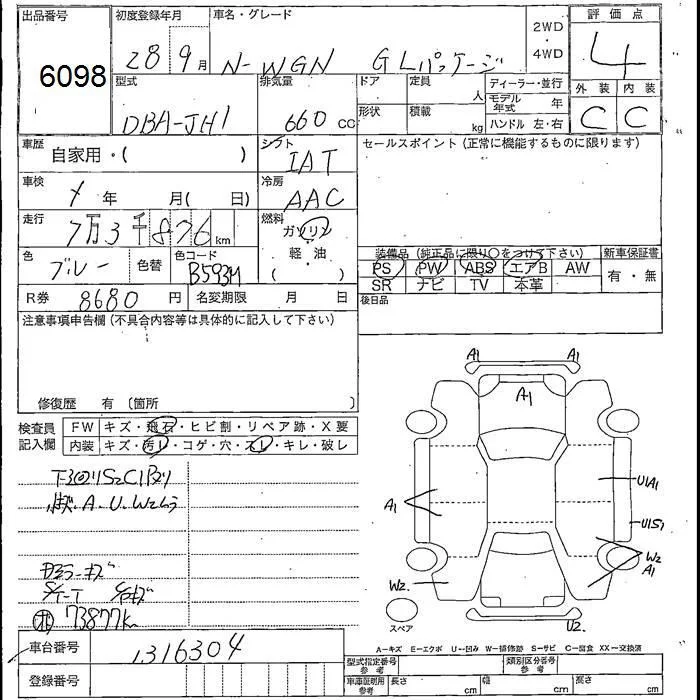 出品番号 初度登録年月 車名・グレード 2WD ・ 4WD 評価点
6098 28 9月 N-WGN GLパッケージ 4
型式 排気量 ドア 定員 人 ディーラー・並行 外装 内装
DBA-JH1 660 cc 形状 積載 kg モデル年式 年 C C
ハンドル 左・右
車歴 自家用・( ) シフト IAT セールスポイント(正常に機能するものに限ります)
車検 年 月( 日) 冷房 AAC
走行 7万3千876km 燃料 ガソリン
軽・油
( )
色 ブルー 色替 色コード B593M
装備品(純正品に限り○をつけて下さい) 新車保証書
PS PW ABS エアB AW 有・無
SR ナビ TV 本革
R券 8680円 名変期限 月 日 後日品
注意事項申告欄(不具合内容等は具体的に記入して下さい)
修復歴 有 (箇所 )
検査員記入欄 FW キズ・飛石・ヒビ割・リペア跡・X要
内装 キズ・汚れ・コゲ・穴・スレ・キレ・破レ
A1 A1
A1
U1A1
A1
U1S1
W2
A1
W2
U2
スペア
A・U・W2
73877k
A-キズ E-エクボ U-凹み W-補修跡 S-サビ C-腐食 XX-交換済
車台番号 1316304
登録番号
型式指定番号 参考 類別区分番号 参考
車庫証明用 参考 長さ cm 幅 cm 高さ cm